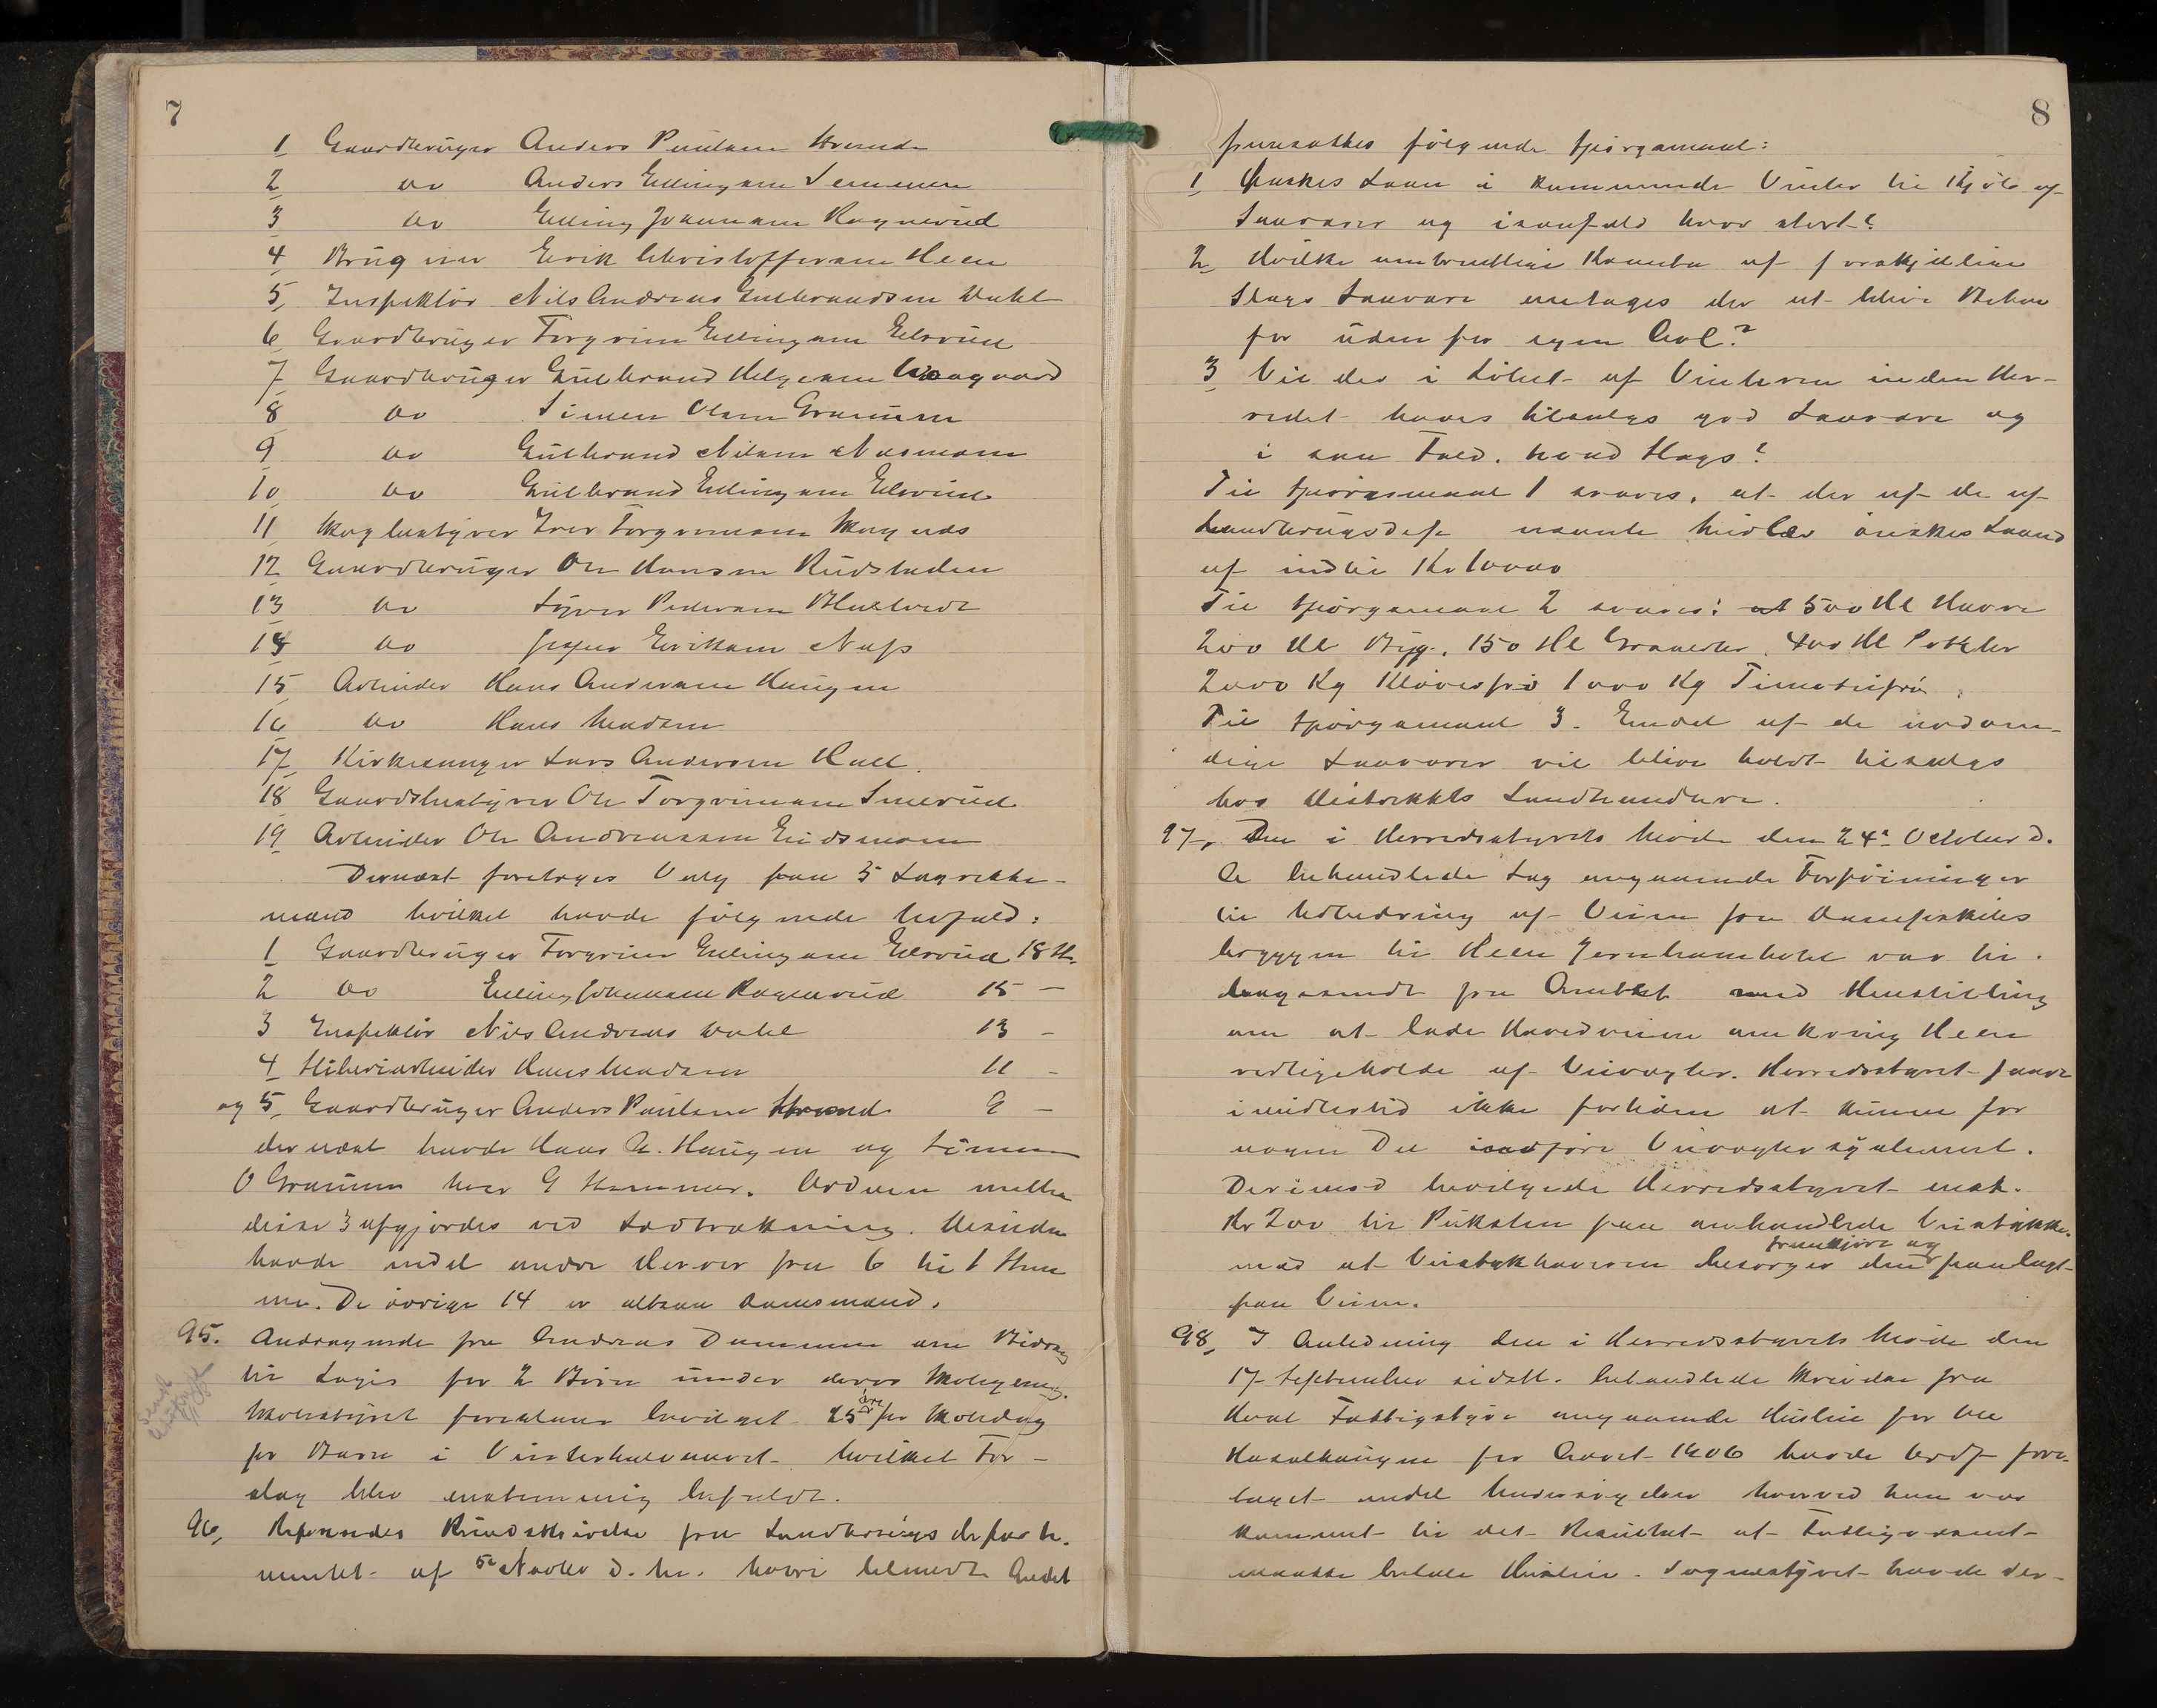 7
1 Gaardbruger Anders Paulsen Strande
2 do Anders Ellingsen Semmen
3 do Elling Johannsen Ragnerud
4 Brugeier Erik Christoffersen Heen
5, Inspektör Nils Andreas Gulbrandsen Dahl
6 Gaardbruger Torgrim Ellingsen Elsrud
7 Gaardbruger Gulbrand Helgesen Haagaard
8 do Simen Olsen Gramum
9 do Gulbrand Nilsen Næsmoen
10 do Gulbrand Ellingsen Elsrud
11 Skogbestyrer Iver Torgrimsen Skognæs
12 Gaardbruger Ole Hansen Rudstaden
13 do Syver Pedersen
14 do Eriksen Næss
15 Arbeider Hans Andersen Haugen
16 do Hans Madsen
17 Kirkesanger Lars Andersen Hall
18 Gaardsbestyrer Ole Torgrimsen Smerud
19 Arbeider Ole Andreassen Eidsmoen
Dernæst foretoges Valg paa 5 Lagrette-
mænd hvilket havde fölgende Udfald:
1 Gaardbruger Torgrim Ellingsen Elsrud 18 St.
2 do Elling Johannsen Ragnerud 15 —
3 Inspektör Nils Andreas Dahl 13 -
4 Sliberiarbeider Hans Madsen 11 -
og 5, Gaardbruger Anders Paulsen Strand 9 -
dernæst havde Hans A. Haugen og Simen
O Gramum hver 9 Stemmer. Ordenen mellem
disse 3 afgjordes ved Lodtrækning. Desuden
havde endel andre Herrer fra 6 til 1 Stem
me. De övrige 14 er altsaa Domsmænd.
95. Andragende fra Andreas om Bidrag
til Logis for 2 Börn under deres Skolegang.
Skolestyret foreslaar bevilget 25 öre pr Skoledag
pr Barn i Vinterhalvaaret hvilket For-
slag blev enstemmig bifaldt.
96, Refereredes Rundskrivelse fra Landbrugsdeparte-
mentet af 5te Novbr d. A. hvori blandt Andet
8
fremsattes fölgende Spörgsmaal:
1 Önskes Laan i kommende Vinter til Kjöb af
Saavarer og isaafald hvor stort?
2 Hvilke omtrentlige Kvanta af forskjellige
Slags Saavare antages der at blive Behov
for uden for egen Avl?
3 Vil der i Löbet af Vinteren inden Her-
redet haves tilsalgs god Saavare og
i saa Fald. hvad Slags?
Til Spörgsmaal 1 svares, at der af de af
Landbrugsdept nævnte Midler önskes Laand
af indtil Kr 10000
Til Spörgsmaal 2 svares: at 500 Hl Havre
200 Hl Byg. 150 Hl Graaerter. 400 Hl Poteter
2000 Kg Klöverfrö 1000 Kg Timoteifrö
Til Spörgsmaal 3. Endel af de nödven-
dige Saavarer vil blive holdt tilsalgs
hos Distriktets Landhandlere.
97, Den i Herredsstyrets Möde den 24de October d.
A behandlede Sag angaaende Forföininger
til Udbedring af Veien fra Dampskibs
bryggen til Heen Jernbanehotel var til-
bagesendt fra Amtet med Henstilling
om at lade Hovedveien omkring Heen
vedligeholde af Veivogter. Herredsstyret fandt
imidlertid ikke fortiden at kunne for
nogen Del indföre Veivogtersystemet.
Derimod bevilgede Herredsstyret enst.
Kr 200 til Puksten paa omhandlede Veistykke
mod at Veistykhaveren besörger den fremkjört og paalagt
paa Veien.
98, I Anledning den i Herredsstyrets Möde den
17 September sidstl. behandlede Skrivelse fra
Hole Fattigstyre angaaende Husleie for Ole
for Aaret 1906 havde Ordf fore-
taget endel Undersögelser hvorved han var
kommet til det Resultat at Fattigvæsenet
maatte betale Husleie. Sognestyret havde der-